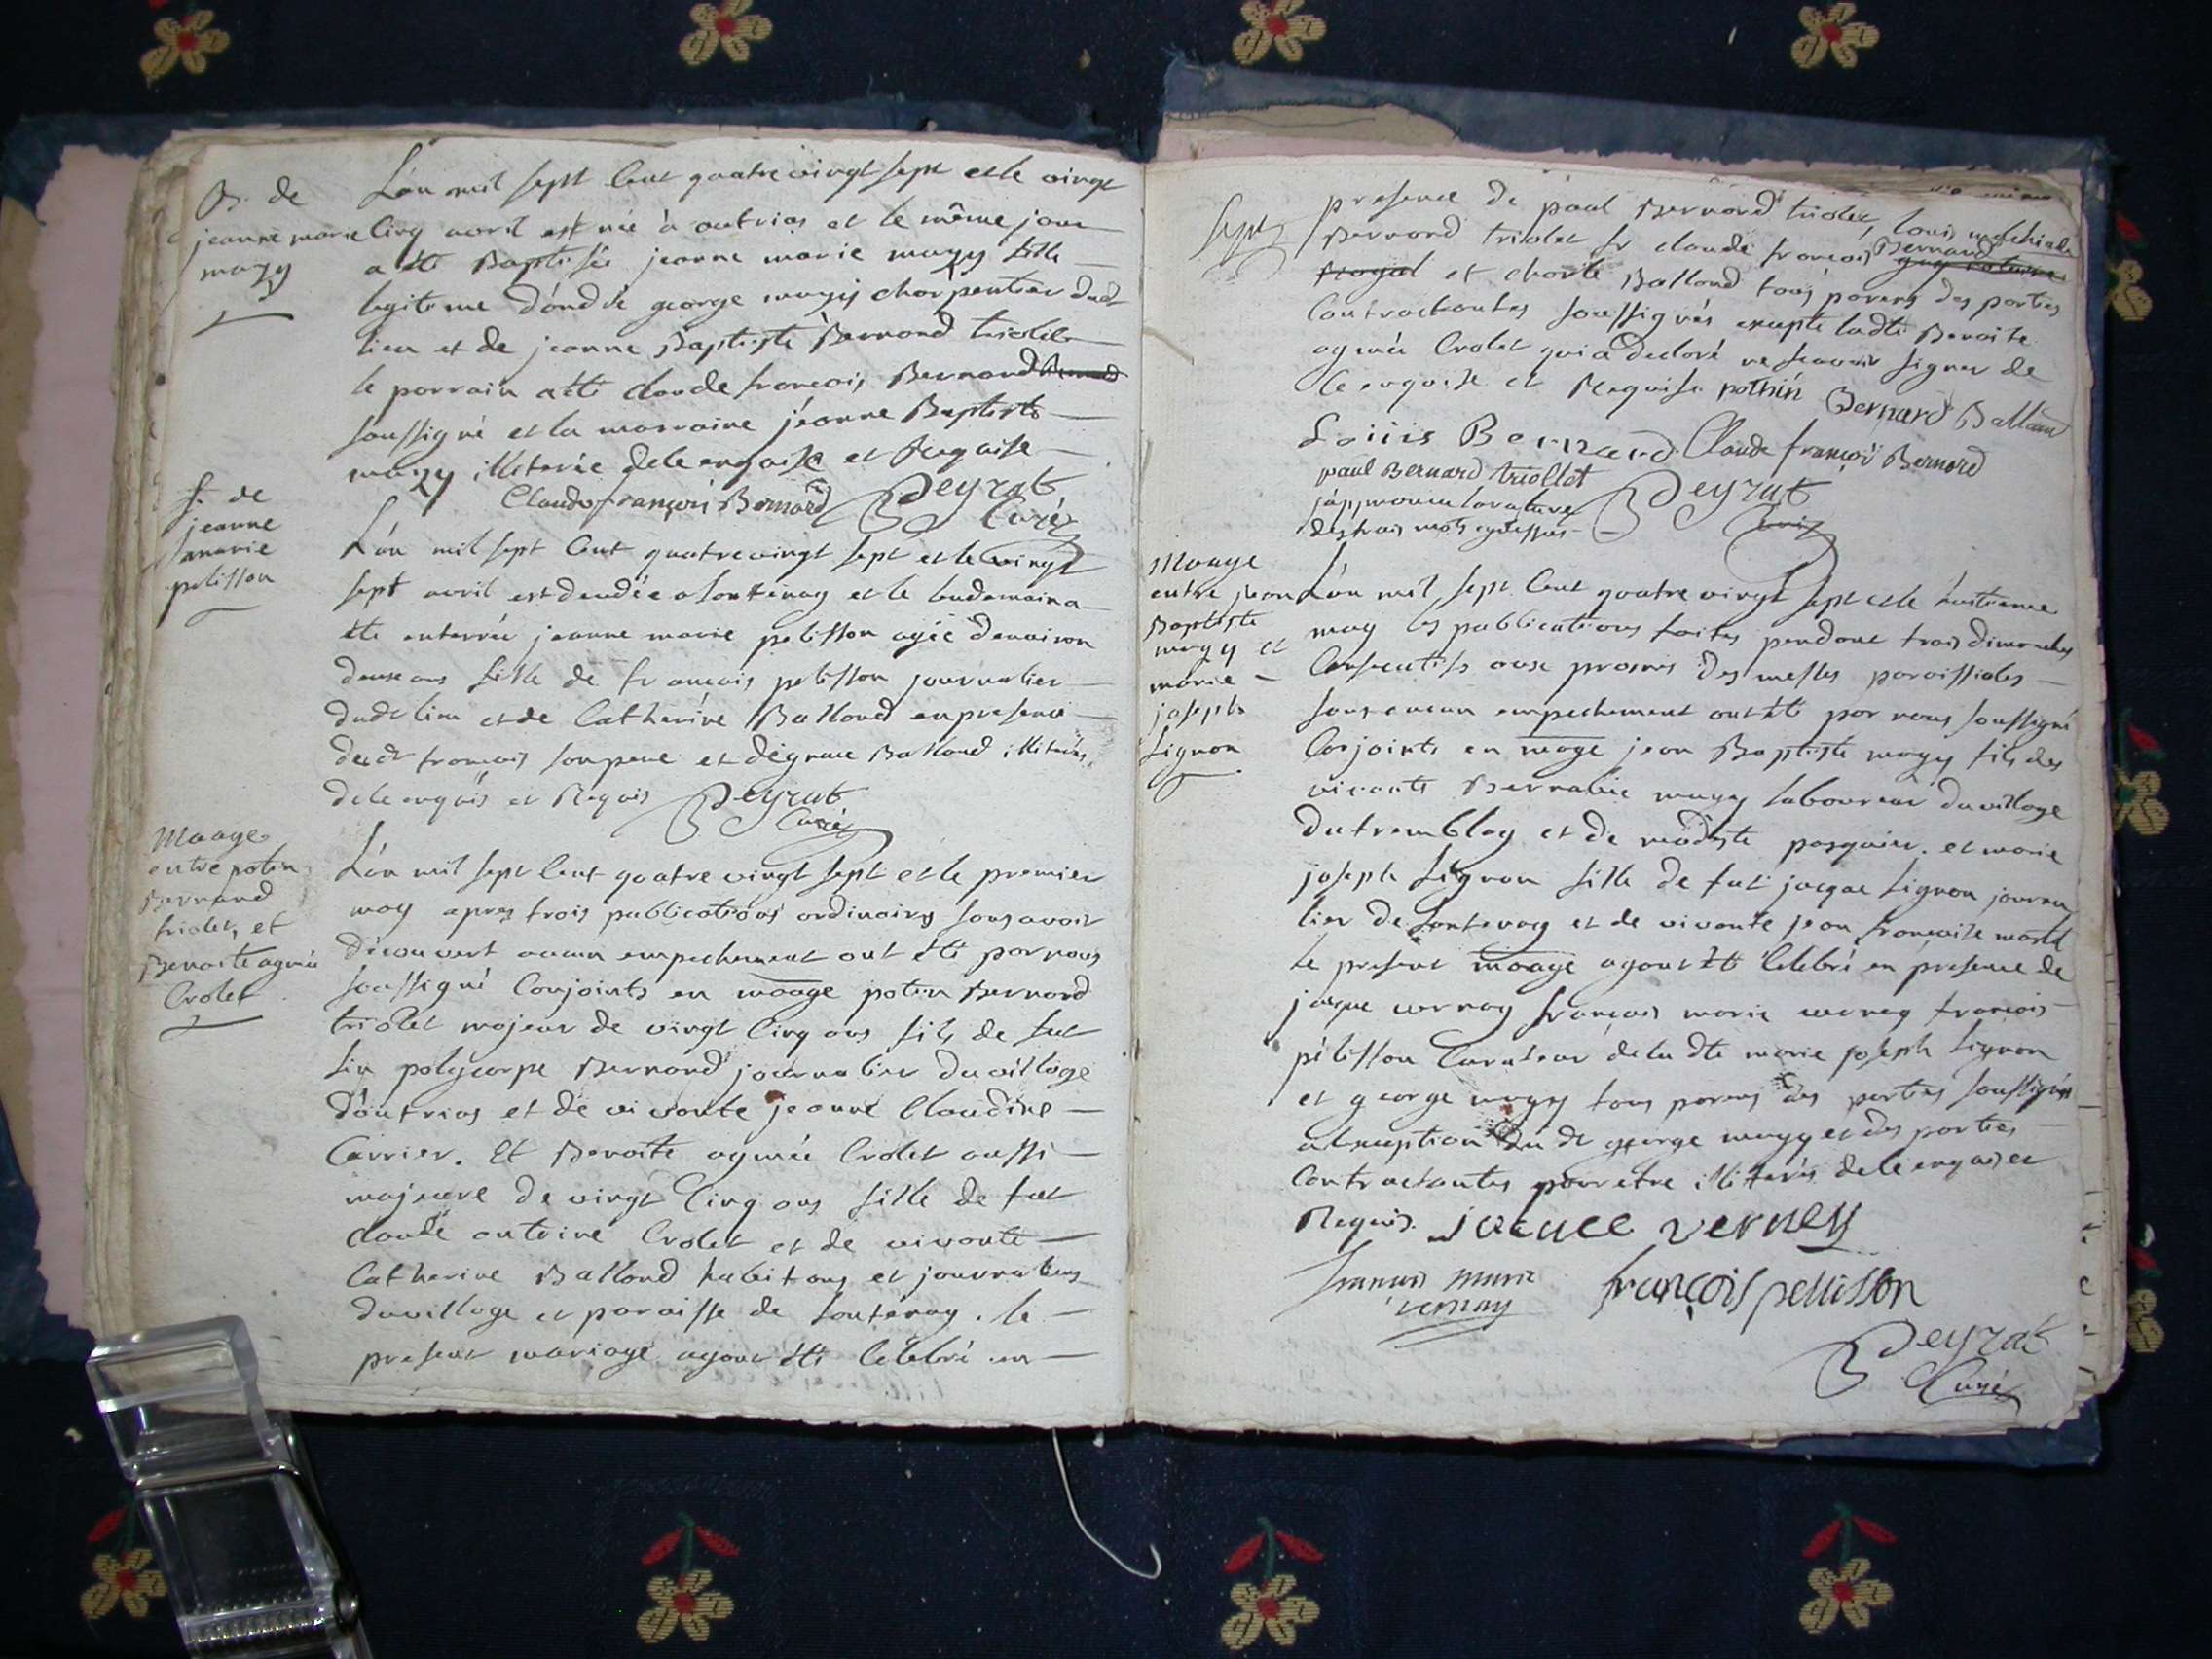 B. de
jeanne marie
magy
L'an mil sept cent quatre vingt sept et le vingt
cinq avril est née à outrias et le même jour
a été Baptisée jeanne marie magy fille
legitime d'
george magy charpentier dudt
lieu et de jeanne Baptiste Bernard triolet
le parrain a été claude francois Bernard
soussigné et la marraine jeanne Baptiste
magy illiterée de ce enquise et Requise
Claude françois Bernard Peyrat
Curé
S. de
jeanne
marie
pelisson
L'an mil sept cent quatre vingt sept et le vingt
sept avril est decedée a Lantenay et le lendemain a
été enterrée jeanne marie pelisson agée denviron
douze ans fille de francois pelisson journalier
dudt lieu et de Catherine Balland en presence
dudt francois son pere et
Balland illiterés
de ce enquis et Requis Peyrat
Curé
Maage
entre potin
Bernard
triolet, et
Benoite aymée
Crolet
L'an mil sept cent quatre vingt sept et le premier
may apres trois publications ordinaires sans avoir
découvert aucun empechement ont été par nous
soussigné Conjoints en maage potin Bernard
triolet majeur de vingt cinq ans fils de fut
polycarpe Bernard journalier du village
d'outrias et de vivante jeanne Claudine
Carrier. Et Benoite aymée Crolet aussi
majeure de vingt cinq ans fille de fut
claude antoine Crolet et de vivante
Catherine Balland habitans et journaliers
du village et paroisse de Lantenay. le
present mariage ayant été celebré en
sept
presence de paul Bernard triolet, louis melchiade
Bernard triolet fr claude francois Bernard
et charle Balland tous parens des parties
Contractantes soussignés excepté ladte Benoite
aymée Crolet qui a declaré ne scavoir signer de
ce enquise et Requise pothin Bernard Balland
Loüis Bernard Claude françois Bernard
paul Bernard triollet Peyrat
j'approuve la rature Curé
des trois mots cydessus
Maage
entre jean
Baptiste
magy et
marie
joseph
Lignon
L'an mil sept cent quatre vingt sept et le huitieme
may les publications faites pendant trois dimanches
Consecutifs aux prosnes des messes paroissiales
sans aucun empechement ont été par nous soussigné
Conjoints en maage jean Baptiste magy fils des
vivants Bernabée magy laboureur du village
du tremblay et de modeste pasquier. et marie
joseph Lignon fille de fut jacque Lignon journa
lier de Lantenay et de vivante jean francoise
le present maage ayant été Celebré en presence de
jacque vernay francois marie vernay francois
pélisson Curateur de la dte marie joseph Lignon
et george magy tous parens des parties soussignés
a l'exception du dt george magy et des parties
Contractantes pour etre illiterés de ce enquis et
Requis. jacque verney
francois marie
vernay
françois pellisson
Peyrat
Curé